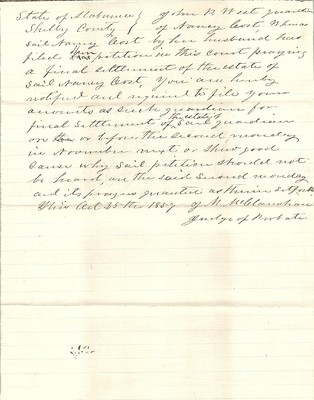 State of Alabama } John R. West guardian
Shelby County } of Nancy Cost Whereas
Said Nancy Cost by her husband has
filed their petition in this Court praying
a final settlement of the estate of
Said Nancy Cost, You are hereby
notified and required to file your
accounts as such guardian for
the estate of
final Settlement of Said guardian
on or before the second monday
in November next or Shew good
Cause why Said petition should not
be heard, on the said Second monday
and its prayer granted as therein Set forth
This Oct 25th 1857 M. McClanahan
Judge of Probate